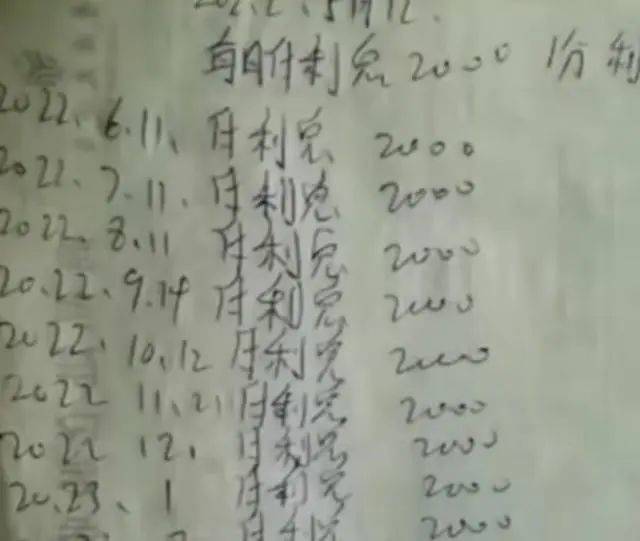 2022.5月12.
每月付利息2000 1分利
2022.6.11.付利息 2000
2022.7.11.付利息 2000
2022.8.11 付利息 2000
20.22.9.14 付利息 2000
2022.10.12 付利息 2000
2022 11.21 付利息 2000
2022 12. 付利息 2000
20.23.1 付利息 2000
付利息 2000